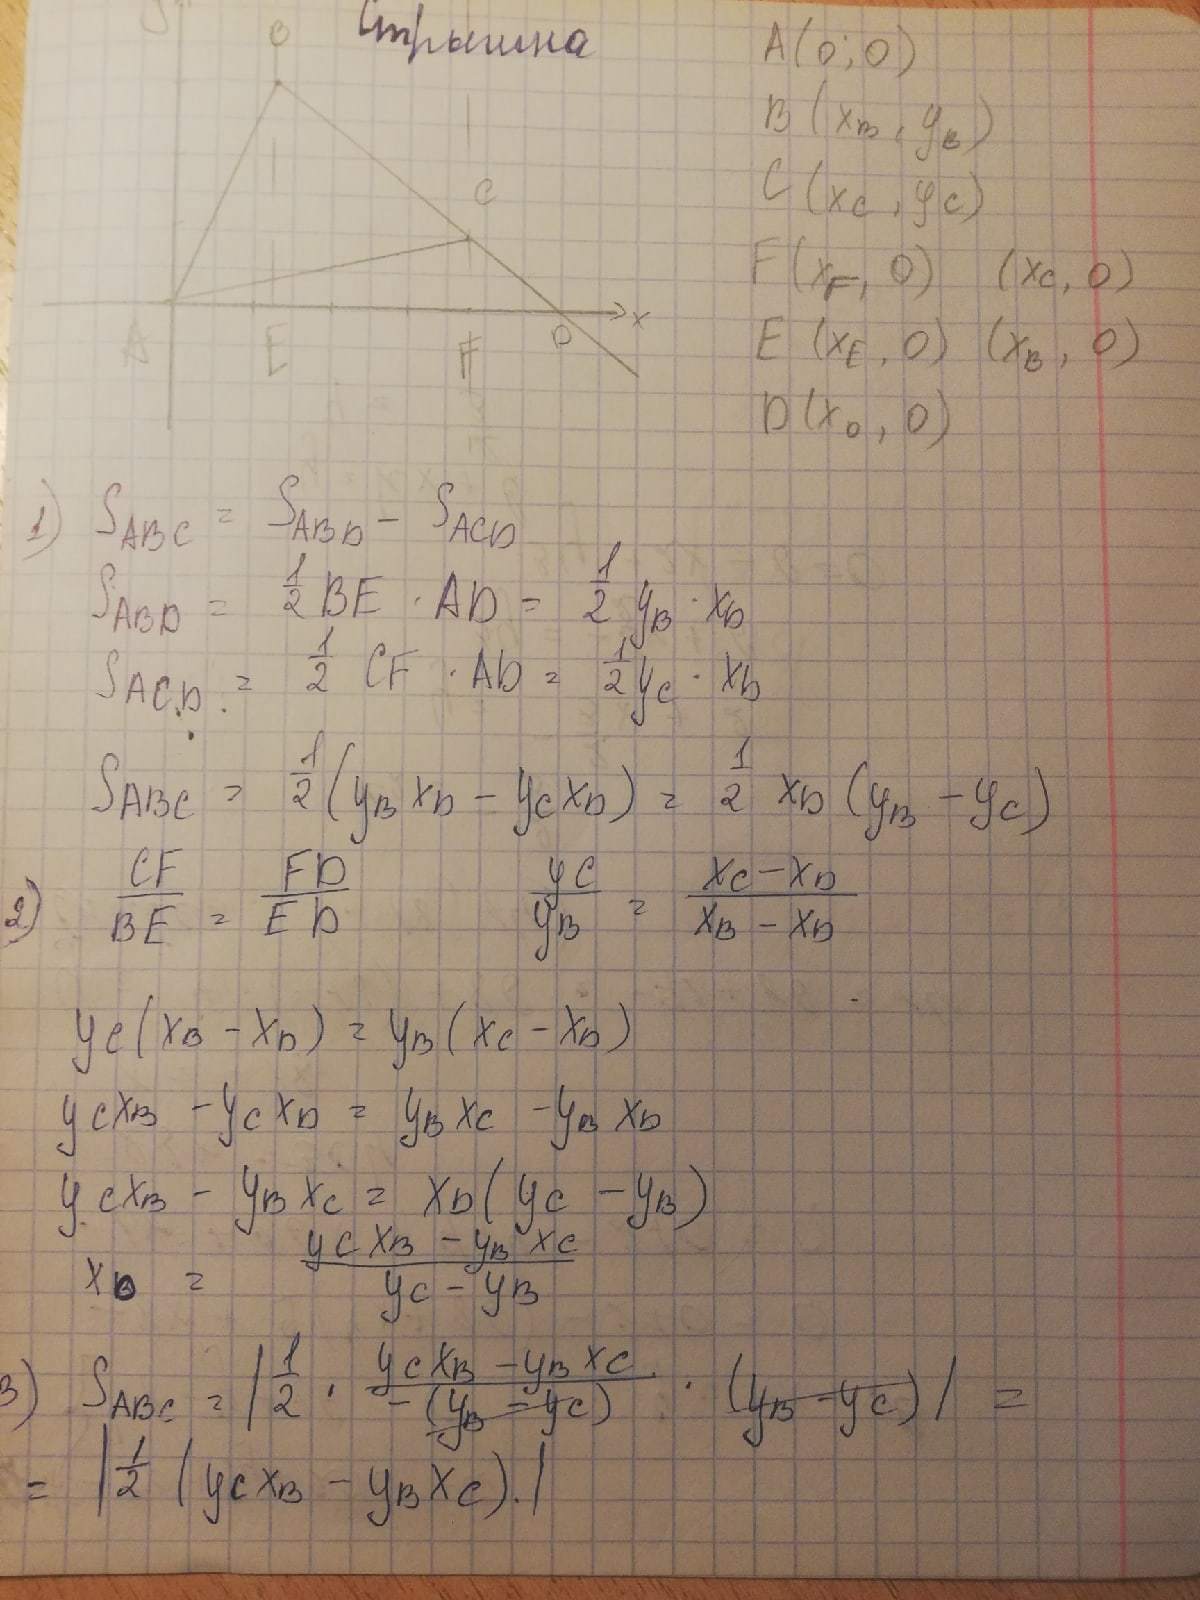 y
B
Стрышна
A(0;0)
B(x_B, y_B)
C(x_C, y_C)
F(x_F, 0) (x_C, 0)
E(x_E, 0) (x_B, 0)
D(x_D, 0)
C
A E F D x
1) S_ABC = S_ABD - S_ACD
S_ABD = 1/2 BE · AD = 1/2 y_B · x_D
S_ACD = 1/2 CF · AD = 1/2 y_C · x_D
S_ABC = 1/2 (y_B x_D - y_C x_D) = 1/2 x_D (y_B - y_C)
2) CF/BE = FD/ED y_C/y_B = (x_C - x_D)/(x_B - x_D)
y_C (x_B - x_D) = y_B (x_C - x_D)
y_C x_B - y_C x_D = y_B x_C - y_B x_D
y_C x_B - y_B x_C = x_D (y_C - y_B)
x_D = (y_C x_B - y_B x_C)/(y_C - y_B)
3) S_ABC = |1/2 · (y_C x_B - y_B x_C)/(-(y_B - y_C)) · (y_B - y_C)| =
= |1/2 (y_C x_B - y_B x_C).|